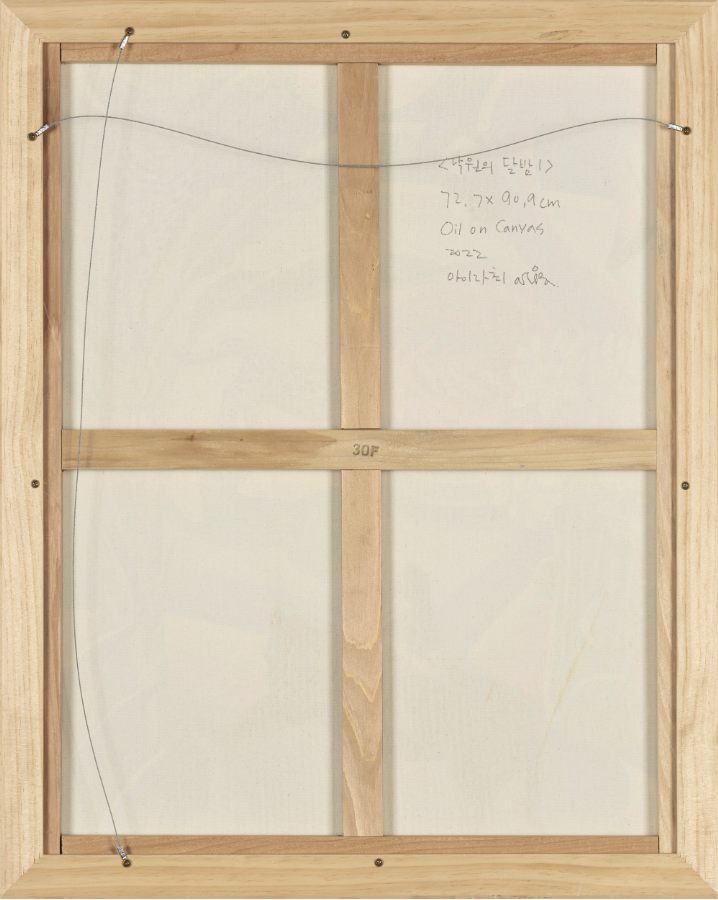 <낙원의 달밤 1>
72.7x 90.9cm
Oil on Canvas
2022
아이라최
30F